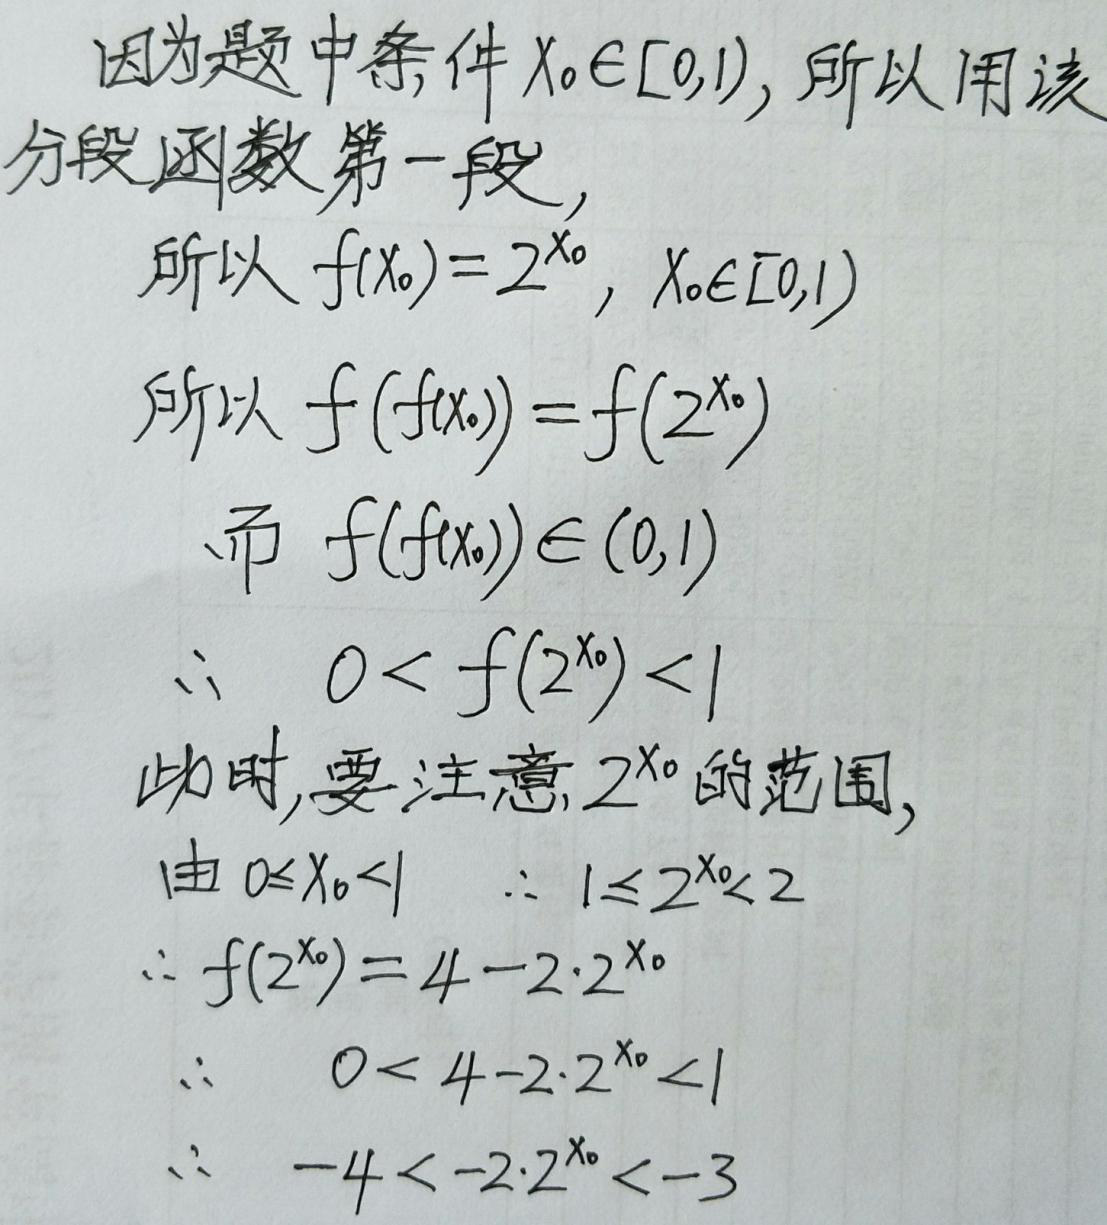 因为题中条件 X₀∈[0,1), 所以用该
分段函数第一段,
所以 f(X₀)=2^X₀, X₀∈[0,1)
所以 f(f(X₀))=f(2^X₀)
而 f(f(X₀))∈(0,1)
∴ 0<f(2^X₀)<1
此时,要注意 2^X₀ 的范围,
由 0≤X₀<1 ∴ 1≤2^X₀<2
∴ f(2^X₀)=4-2·2^X₀
∴ 0<4-2·2^X₀<1
∴ -4<-2·2^X₀<-3